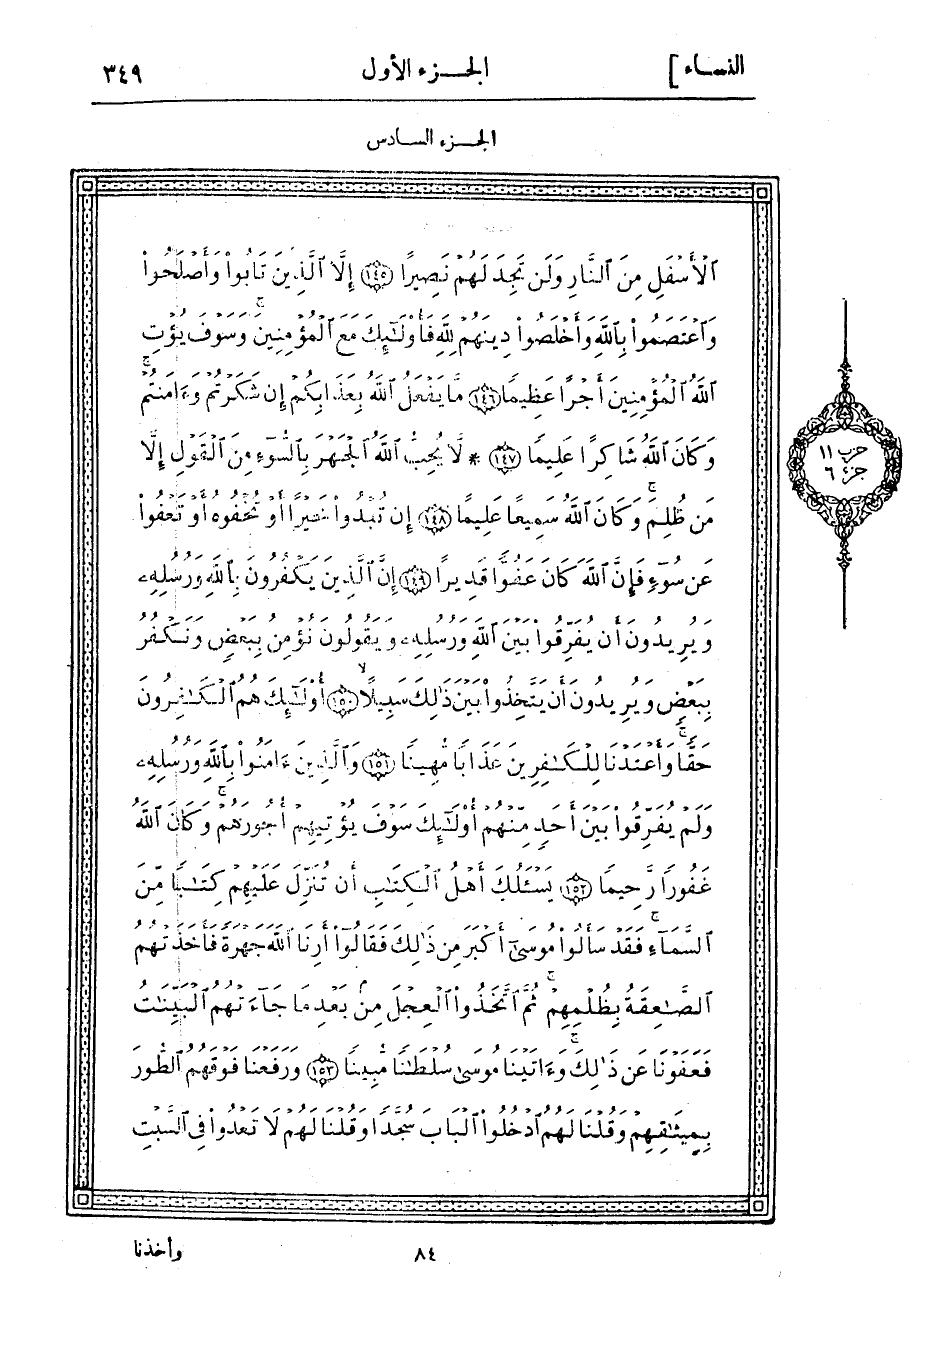 النساء]
الجزء الأول
٣٤٩
الجزء السادس
ٱلْأَسْفَلِ مِنَ ٱلنَّارِ وَلَن تَجِدَ لَهُمْ نَصِيرًا ١٤٥ إِلَّا ٱلَّذِينَ تَابُوا۟ وَأَصْلَحُوا۟
وَٱعْتَصَمُوا۟ بِٱللَّهِ وَأَخْلَصُوا۟ دِينَهُمْ لِلَّهِ فَأُو۟لَـٰٓئِكَ مَعَ ٱلْمُؤْمِنِينَ ۖ وَسَوْفَ يُؤْتِ
ٱللَّهُ ٱلْمُؤْمِنِينَ أَجْرًا عَظِيمًا ١٤٦ مَّا يَفْعَلُ ٱللَّهُ بِعَذَابِكُمْ إِن شَكَرْتُمْ وَءَامَنتُمْ ۚ
وَكَانَ ٱللَّهُ شَاكِرًا عَلِيمًا ١٤٧ * لَّا يُحِبُّ ٱللَّهُ ٱلْجَهْرَ بِٱلسُّوٓءِ مِنَ ٱلْقَوْلِ إِلَّا
مَن ظُلِمَ ۚ وَكَانَ ٱللَّهُ سَمِيعًا عَلِيمًا ١٤٨ إِن تُبْدُوا۟ خَيْرًا أَوْ تُخْفُوهُ أَوْ تَعْفُوا۟
عَن سُوٓءٍ فَإِنَّ ٱللَّهَ كَانَ عَفُوًّا قَدِيرًا ١٤٩ إِنَّ ٱلَّذِينَ يَكْفُرُونَ بِٱللَّهِ وَرُسُلِهِۦ
وَيُرِيدُونَ أَن يُفَرِّقُوا۟ بَيْنَ ٱللَّهِ وَرُسُلِهِۦ وَيَقُولُونَ نُؤْمِنُ بِبَعْضٍ وَنَكْفُرُ
بِبَعْضٍ وَيُرِيدُونَ أَن يَتَّخِذُوا۟ بَيْنَ ذَٰلِكَ سَبِيلًا ۙ ١٥٠ أُو۟لَـٰٓئِكَ هُمُ ٱلْكَـٰفِرُونَ
حَقًّا ۚ وَأَعْتَدْنَا لِلْكَـٰفِرِينَ عَذَابًا مُّهِينًا ١٥١ وَٱلَّذِينَ ءَامَنُوا۟ بِٱللَّهِ وَرُسُلِهِۦ
وَلَمْ يُفَرِّقُوا۟ بَيْنَ أَحَدٍ مِّنْهُمْ أُو۟لَـٰٓئِكَ سَوْفَ يُؤْتِيهِمْ أُجُورَهُمْ ۗ وَكَانَ ٱللَّهُ
غَفُورًا رَّحِيمًا ١٥٢ يَسْـَٔلُكَ أَهْلُ ٱلْكِتَـٰبِ أَن تُنَزِّلَ عَلَيْهِمْ كِتَـٰبًا مِّنَ
ٱلسَّمَآءِ ۚ فَقَدْ سَأَلُوا۟ مُوسَىٰٓ أَكْبَرَ مِن ذَٰلِكَ فَقَالُوٓا۟ أَرِنَا ٱللَّهَ جَهْرَةً فَأَخَذَتْهُمُ
ٱلصَّـٰعِقَةُ بِظُلْمِهِمْ ۚ ثُمَّ ٱتَّخَذُوا۟ ٱلْعِجْلَ مِنۢ بَعْدِ مَا جَآءَتْهُمُ ٱلْبَيِّنَـٰتُ
فَعَفَوْنَا عَن ذَٰلِكَ ۚ وَءَاتَيْنَا مُوسَىٰ سُلْطَـٰنًا مُّبِينًا ١٥٣ وَرَفَعْنَا فَوْقَهُمُ ٱلطُّورَ
بِمِيثَـٰقِهِمْ وَقُلْنَا لَهُمُ ٱدْخُلُوا۟ ٱلْبَابَ سُجَّدًا وَقُلْنَا لَهُمْ لَا تَعْدُوا۟ فِى ٱلسَّبْتِ
حزب ١١
جزء ٦
٨٤
وأخذنا